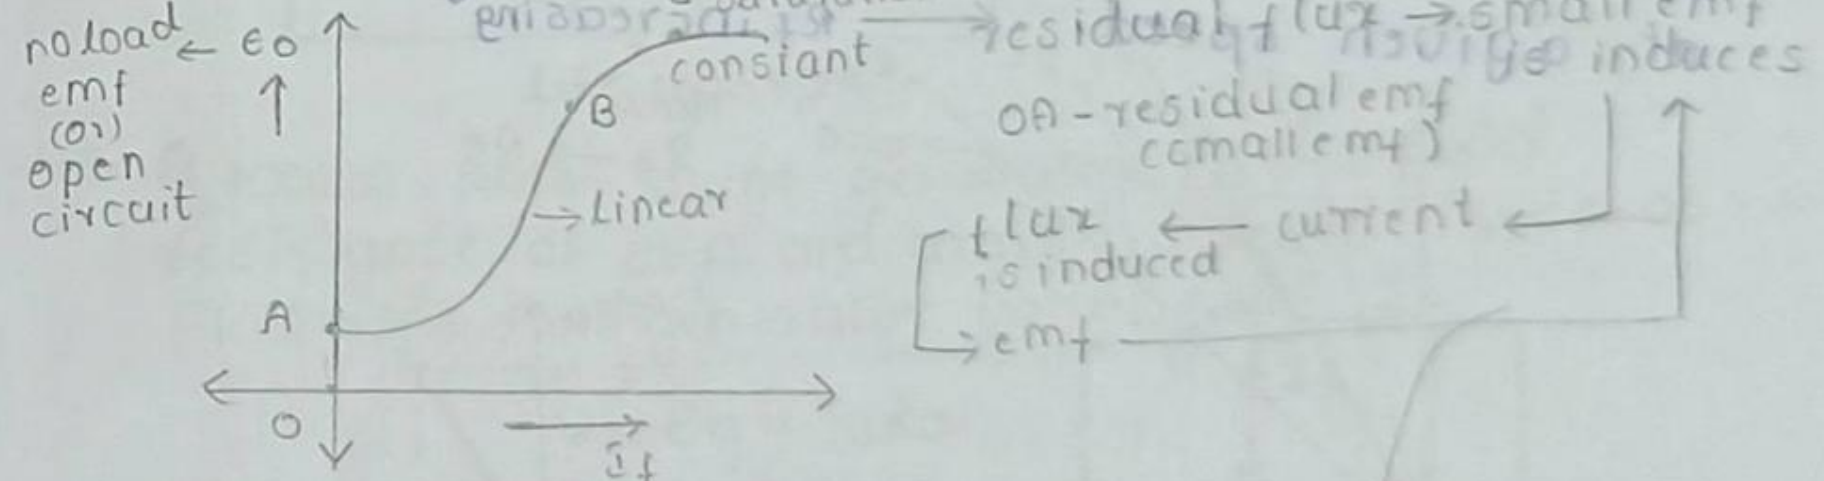 no load ← E0
emf
(or)
open
circuit
constant
B
→ Linear
A
O
If
residual flux → small emf
induces
OA - residual emf
(small emf)
flux ← current
is induced
→ emf